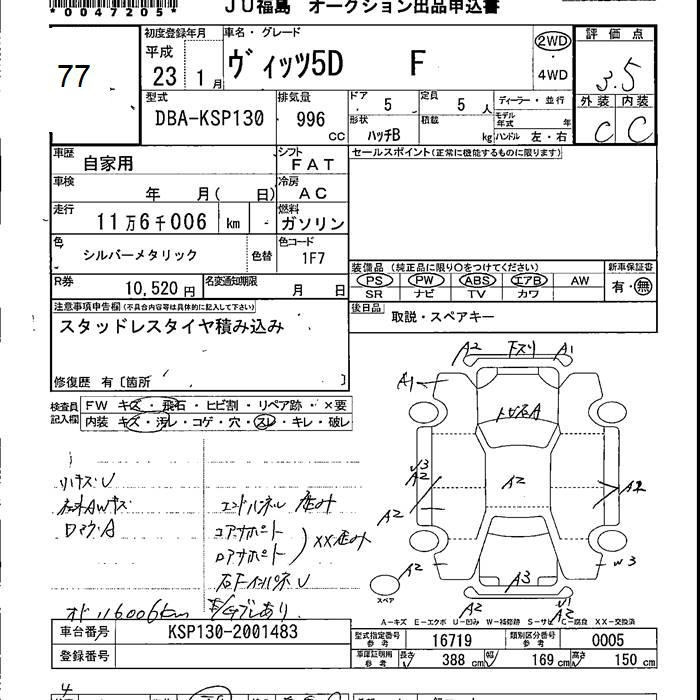 *0047205*
JU福島 オークション出品申込書
77
初度登録年月
平成
23 1月
車名・グレード
ヴィッツ5D F
2WD
・
4WD
評価点
3.5
外装 内装
C C
型式
DBA-KSP130
排気量
996
cc
ドア 5
定員 5 人
形状 ハッチB
積載 kg
ディーラー・並行
モデル年式 年
ハンドル 左・右
車歴 自家用
シフト FAT
セールスポイント(正常に機能するものに限ります)
車検 年 月( 日)
冷房 AC
走行 11万6千006 km
燃料 ガソリン
色 シルバーメタリック 色替
色コード 1F7
装備品(純正品に限り○をつけてください)
PS PW ABS エアB AW
SR ナビ TV カワ
新車保証書
有・無
R券 10,520円
名変通知期限 月 日
後日品 取説・スペアキー
注意事項申告欄(不具合内容等は具体的に記入して下さい)
スタッドレスタイヤ積み込み
修復歴 有[箇所 ]
検査員記入欄
FW キズ・飛石・ヒビ割・リペア跡・×要
内装 キズ・汚レ・コゲ・穴・スレ・キレ・破レ
A2 下スリ A1
A1
A2
A2
A2
A2
A2
A2
W3
A3
A2
スペア
A-キズ E-エクボ U-凹み W-補修跡 S-サビ C-腐食 XX-交換済
車台番号 KSP130-2001483
登録番号
型式指定番号 参考 16719
類別区分番号 参考 0005
車庫証明用 参考 長さ 388 cm 幅 169 cm 高さ 150 cm